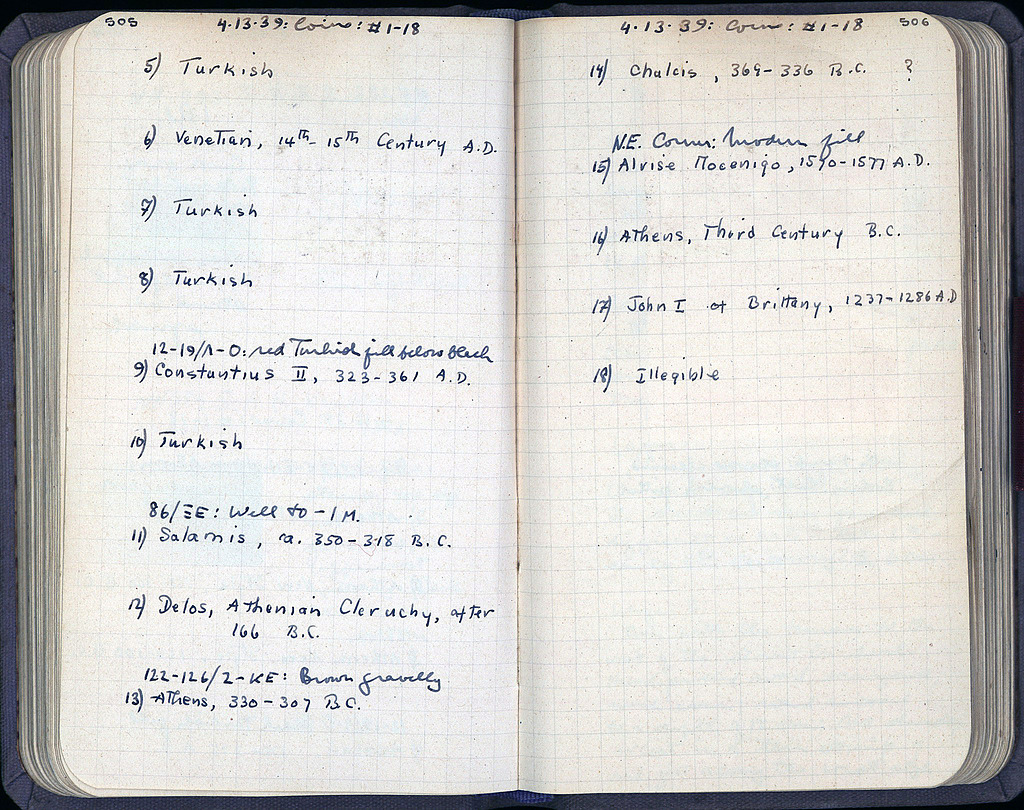 505
4·13·39: Coins: #1-18
5) Turkish
6) Venetian, 14th-15th Century A.D.
7) Turkish
8) Turkish
12-19/Λ-O: red Turkish fill below black
9) Constantius II, 323-361 A.D.
10) Turkish
86/ΞE: Well to -1 M.
11) Salamis, ca. 350-318 B.C.
12) Delos, Athenian Cleruchy, after
166 B.C.
122-126/2-KE: Brown gravelly
13) Athens, 330-307 B.C.
4·13·39: Coins: #1-18
506
14) Chalcis, 369-336 B.C. ?
N.E. Corner: Modern fill
15) Alvise Mocenigo, 1570-1577 A.D.
16) Athens, Third Century B.C.
17) John I of Brittany, 1237-1286 A.D
18) Illegible